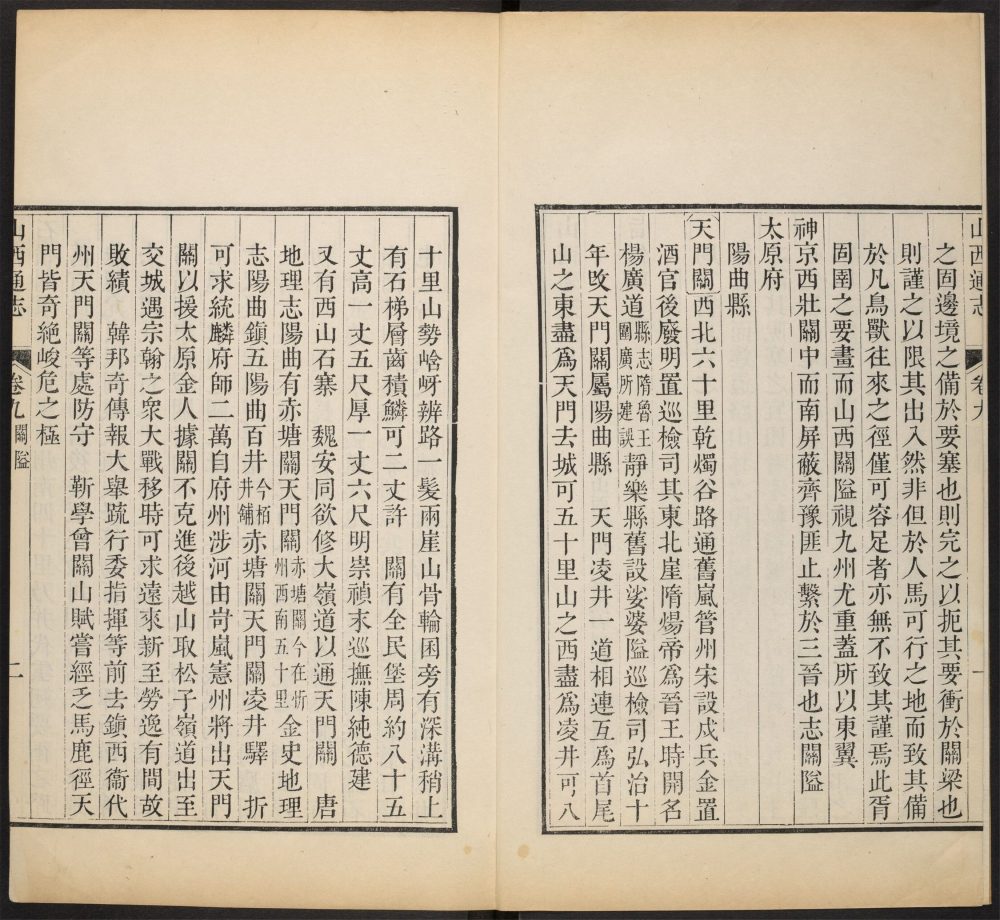 山西通志
卷九
一
之固邊境之備於要塞也則完之以扼其要衝於關梁也
則謹之以限其出入然非但於人馬可行之地而致其備
於凡鳥獸往來之徑僅可容足者亦無不致其謹焉此胥
固圉之要畫而山西關隘視九州尤重蓋所以東翼
神京西壯關中而南屏蔽齊豫匪止繫於三晉也志關隘
太原府
陽曲縣
天門關西北六十里乾燭谷路通舊嵐管州宋設戍兵金置
酒官後廢明置巡檢司其東北崖隋煬帝為晉王時開名
楊廣道縣志隋魯王圍廣所建誤靜樂縣舊設娑婆隘巡檢司弘治十
年改天門關屬陽曲縣　天門凌井一道相連互為首尾
山之東盡為天門去城可五十里山之西盡為凌井可八
十里山勢崡岈辨路一髮兩崖山骨輪囷旁有深溝稍上
有石梯層齒積鱗可二丈許　關有全民堡周約八十五
丈高一丈五尺厚一丈六尺明崇禎末巡撫陳純德建
又有西山石寨　魏安同欲修大嶺道以通天門關　唐
地理志陽曲有赤塘關天門關赤塘關今在忻州西南五十里金史地理
志陽曲鎮五陽曲百井今栢井舖赤塘關天門關凌井驛　折
可求統麟府師二萬自府州涉河由岢嵐憲州將出天門
關以援太原金人據關不克進後越山取松子嶺道出至
交城遇宗翰之眾大戰移時可求遠來新至勞逸有間故
敗績　韓邦奇傳報大舉疏行委指揮等前去鎮西衞代
州天門關等處防守　靳學曾關山賦嘗經乏馬鹿徑天
門皆奇絕峻危之極
山西通志
卷九　關隘
二